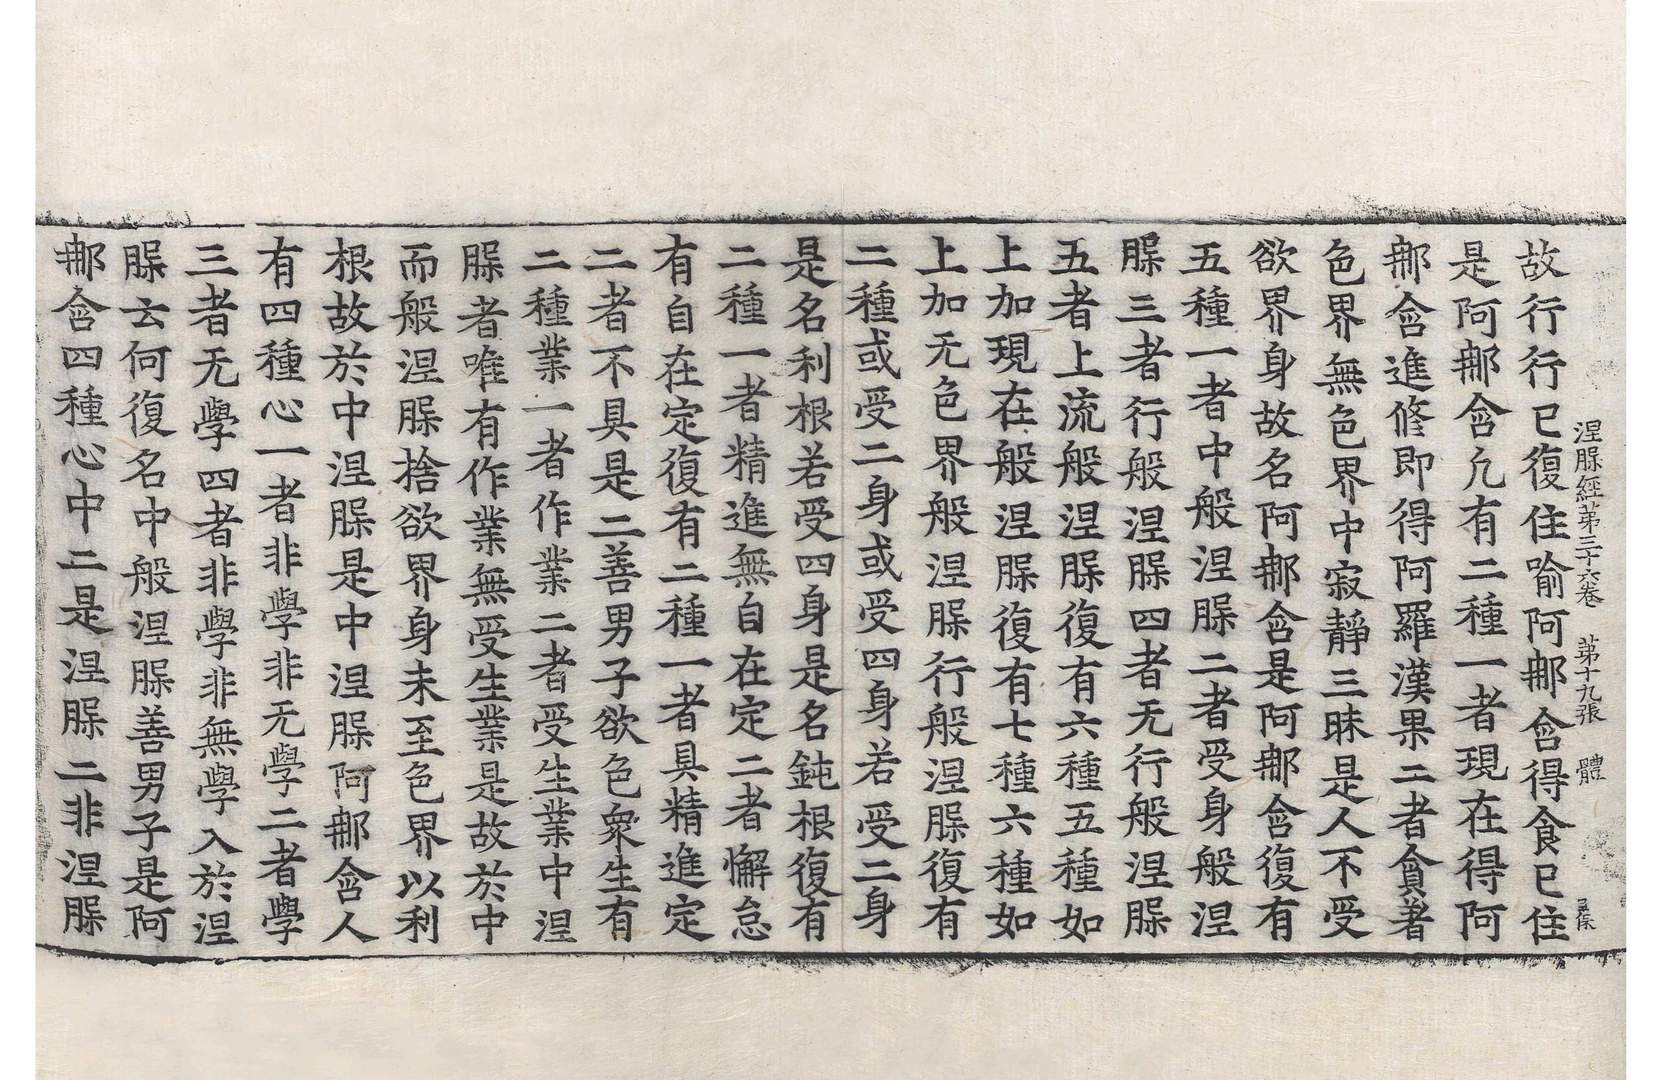 涅槃經第三十六卷　第十九張　體
故行行已復住喻阿那含得食已住
是阿那含凡有二種一者現在得阿
那含進修即得阿羅漢果二者貪著
色界無色界中寂靜三昧是人不受
欲界身故名阿那含是阿那含復有
五種一者中般涅槃二者受身般涅
槃三者行般涅槃四者无行般涅槃
五者上流般涅槃復有六種五種如
上加現在般涅槃復有七種六種如
上加无色界般涅槃行般涅槃復有
二種或受二身或受四身若受二身
是名利根若受四身是名鈍根復有
二種一者精進無自在定二者懈怠
有自在定復有二種一者具精進定
二者不具是二善男子欲色衆生有
二種業一者作業二者受生業中涅
槃者唯有作業無受生業是故於中
而般涅槃捨欲界身未至色界以利
根故於中涅槃是中涅槃阿那含人
有四種心一者非學非无學二者學
三者无學四者非學非無學入於涅
槃云何復名中般涅槃善男子是阿
那含四種心中二是涅槃二非涅槃